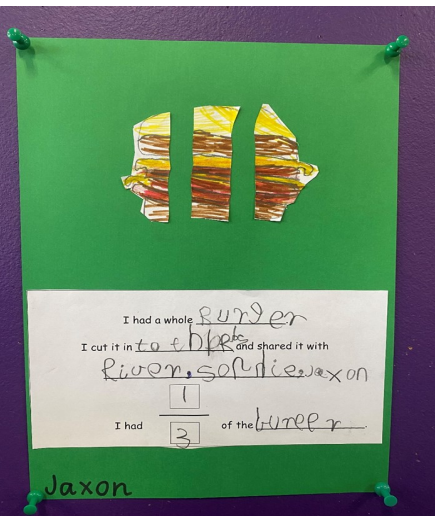 I had a whole Burger
I cut it in to three and shared it with
River, Sophie, Jaxon
1
I had of the burger.
3
Jaxon